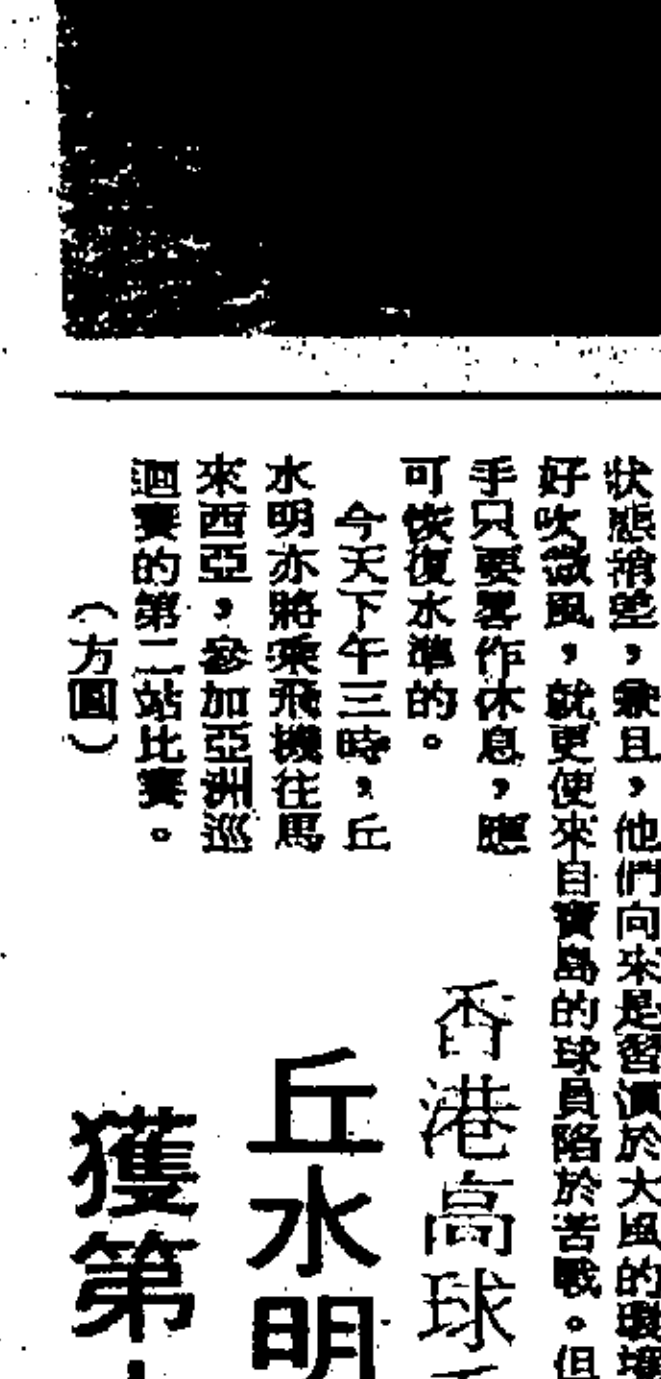 狀態稍差，兼且，他們向來是習慣於大風的環境
好吹微風，就更使來自寶島的球員陷於苦戰。但
手只要畧作休息，應
可恢復水準的。
今天下午三時，丘
水明亦將乘飛機往馬
來西亞，參加亞洲巡
迴賽的第二站比賽。
（方圓）
香港高球
丘水明
獲第